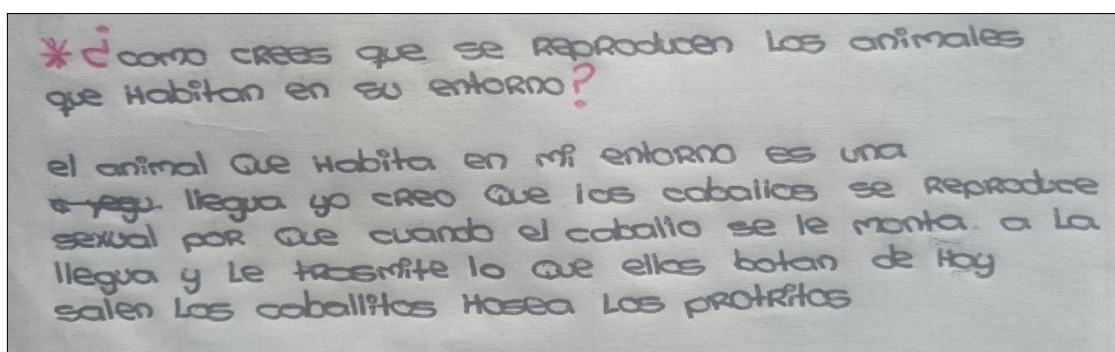 *¿como crees que se Reproducen Los animales
que Habitan en su entorno?
el animal Que Habita en mi entorno es una
llegua yo creo Que los caballos se Reproduce
sexual por Que cuando el caballo se le monta. a La
llegua y Le trasmite lo Que ellos botan de Hoy
salen Los caballitos Hosea Los protritos